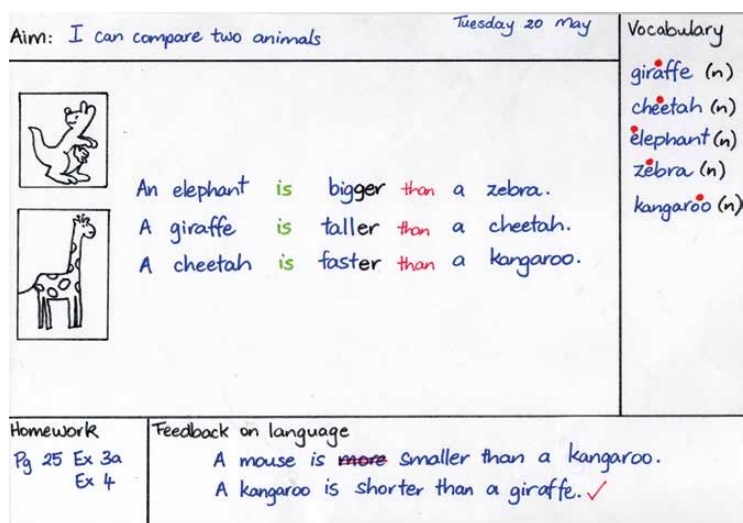 Aim: I can compare two animals
Tuesday 20 May
Vocabulary
giraffe (n)
cheetah (n)
elephant (n)
zebra (n)
kangaroo (n)
An elephant is bigger than a zebra.
A giraffe is taller than a cheetah.
A cheetah is faster than a kangaroo.
Homework
Pg 25 Ex 3a
Ex 4
Feedback on language
A mouse is more smaller than a kangaroo.
A kangaroo is shorter than a giraffe. ✓